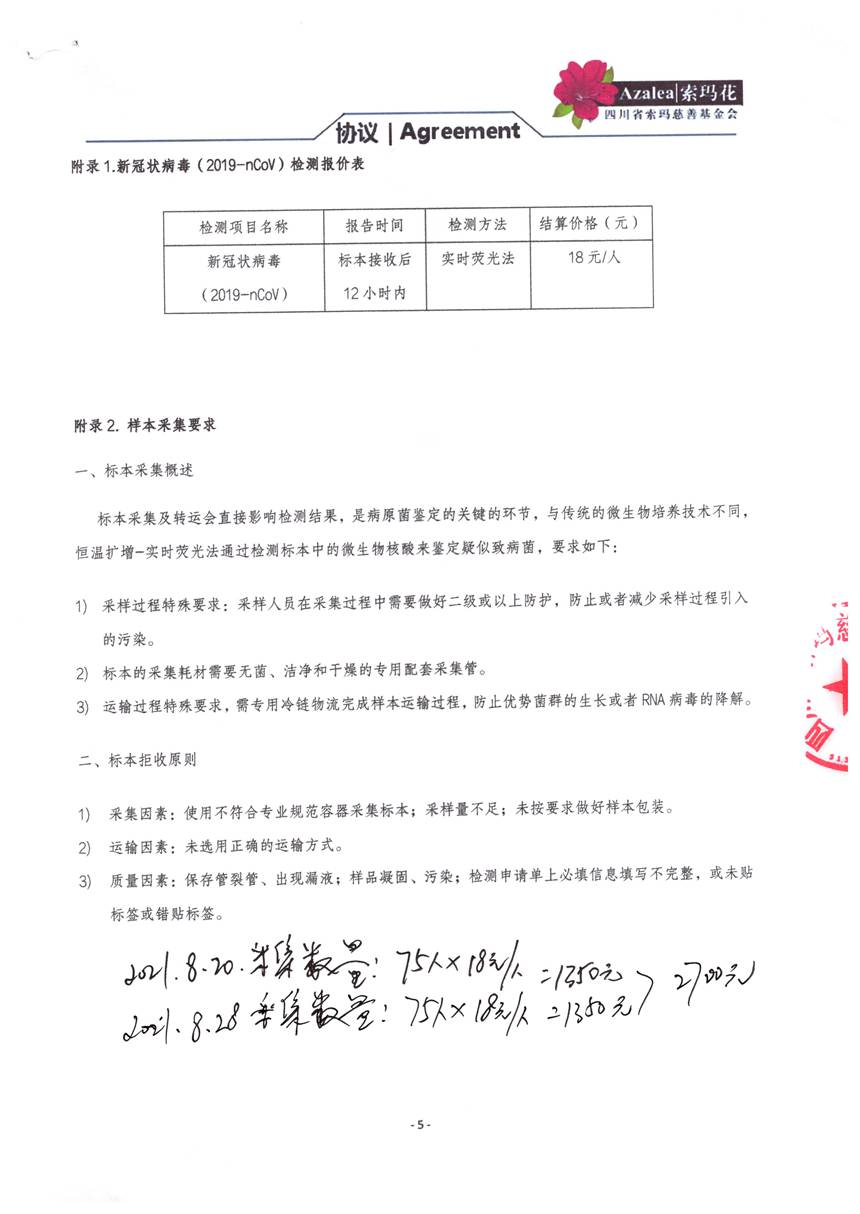 Azalea|索玛花
四川省索玛慈善基金会
协议 | Agreement
附录1.新冠状病毒（2019-nCoV）检测报价表
检测项目名称 报告时间 检测方法 结算价格（元）
新冠状病毒 标本接收后 实时荧光法 18元/人
（2019-nCoV） 12小时内
附录2. 样本采集要求
一、标本采集概述
标本采集及转运会直接影响检测结果，是病原菌鉴定的关键的环节，与传统的微生物培养技术不同，
恒温扩增-实时荧光法通过检测标本中的微生物核酸来鉴定疑似致病菌，要求如下：
1) 采样过程特殊要求：采样人员在采集过程中需要做好二级或以上防护，防止或者减少采样过程引入
的污染。
2) 标本的采集耗材需要无菌、洁净和干燥的专用配套采集管。
3) 运输过程特殊要求，需专用冷链物流完成样本运输过程，防止优势菌群的生长或者RNA病毒的降解。
二、标本拒收原则
1) 采集因素：使用不符合专业规范容器采集标本；采样量不足；未按要求做好样本包装。
2) 运输因素：未选用正确的运输方式。
3) 质量因素：保存管裂管、出现漏液；样品凝固、污染；检测申请单上必填信息填写不完整，或未贴
标签或错贴标签。
2021.8.20.采集数量：75人×18元/人=1350元
2021.8.28采集数量：75人×18元/人=1350元 〉2700元
玛慈
四川
- 5 -